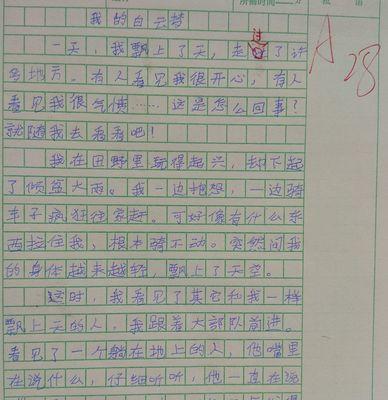 所需时间 分
我的白云梦
一天，我飘上了天，走过了许
多地方。有人看见我很开心，有人
看见我很气愤……这是怎么回事？
就随我去看看吧！
我在田野里玩得起兴，却下起
了倾盆大雨。我一边抱怨，一边骑
车子疯狂往家赶。可好像有什么东
西拉住我，根本骑不动。突然间我
的身体越来越轻，飘上了天空。
这时，我看见了其它和我一样
飘上天的人。我跟着大部队前进。
看见了一个躺在地上的人，他嘴里
在说什么，仔细听听，他一直在说
A 28